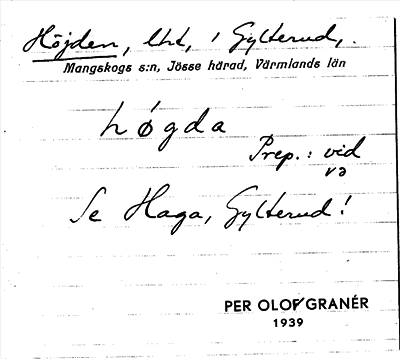 Höjden, lht, i Gylterud,.
Mangskogs s:n, Jösse härad, Värmlands län
högda
Prep.: vid
va
Se Haga, Gylterud!
PER OLOF GRANÉR
1939